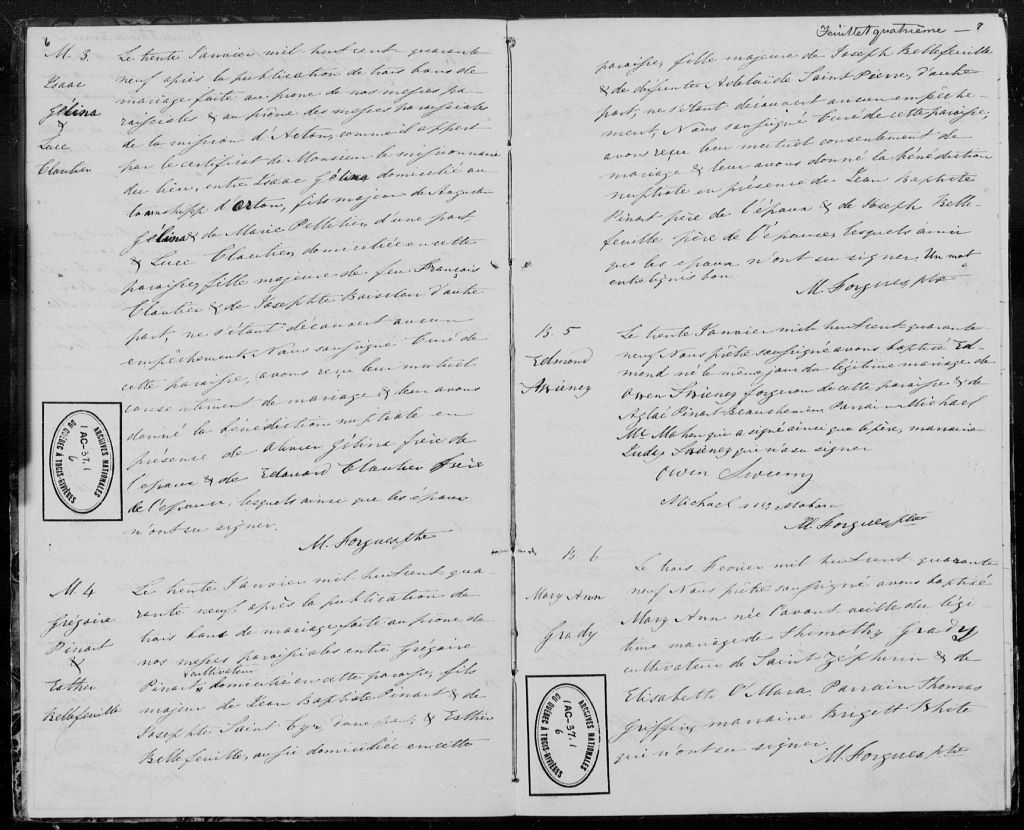 6
M. 3.
Isaac
Gélina
&
Luce
Cloutier
Le trente Janvier mil huit cent quarante
neuf après la publication de trois bans de
mariage faite au prone de nos messes pa-
roissiales & au prône des messes paroissiales
de la mission d'Acton, comme il appert
par le certificat de Monsieur le missionnaire
du lieu, entre Isaac Gélina domicilié au
townshipp d'Acton, fils majeur de August
Gélina & de Marie Pelletier, d'une part
& Luce Cloutier, domiciliée en cette
paroisse, fille majeure de feu François
Cloutier & de Josephte Boisclau d'autre
part, ne s'étant découvert aucun
empêchement. Nous soussigné Curé de
cette paroisse, avons reçu leur mutuel
consentement de mariage & leur avons
donné la bénédiction nuptiale en
présence de Olivier Gélina frère de
l'epoux & de Edouard Cloutier frère
de l'épouse, lesquels ainsi que les époux
n'ont su signer.
M. Forgues ptre
M. 4
Grégoire
Pinart
&
Esther
Bellefeuille
Le trente Janvier mil huit cent qua-
rante neuf, après la publication de
trois bans de mariage faite au prône de
nos messes paroissiales entre Grégoire
cultivateur
Pinart domicilié en cette paroisse, fils
majeur de Jean Baptiste Pinart & de
Josephte Saint Cyr, d'une part, & Esther
Bellefeuille, aussi domiciliée en cette
ARCHIVES NATIONALES
1 AC-37.1
6
DU QUÉBEC À TROIS-RIVIÈRES
Feuillet quatrième — 7
paroisse, fille majeure de Joseph Bellefeuille
& de défunte Adelaïde Saint Pierre, d'autre
part, ne s'étant découvert aucun empêche-
ment, Nous soussigné Curé de cette paroisse,
avons reçu leur mutuel consentement de
mariage & leur avons donné la bénédiction
nuptiale en présence de Jean Baptiste
Pinart père de l'époux & de Joseph Belle-
feuille père de l'épouse, lesquels ainsi
que les epoux n'ont su signer. Un mot
entreligné bon.
M. Forgues ptre
B. 5
Edmond
Swiency
Le trente Janvier mil huit cent quarante
neuf Nous prêtre soussigné avons baptisé Ed-
mond né le même jour du légitime mariage de
Owen Swieney forgeron de cette paroisse & de
Aglaé Pinart Beauchemin. Parrain Michael
Mc Mahon qui a signé ainsi que le père, marraine
Judy Swieney qui n'a su signer
Owen Sweeny
Michael Mc Mahon
M. Forgues ptre
B. 6
Mary Ann
Grady
Le trois Fevrier mil huit cent quarante
neuf Nous prêtre soussigné avons baptisé
Mary Ann née l'avant veille du légi-
time mariage de Thimothy Grady
cultivateur de Saint Zéphirin & de
Elisabeth O'Mara. Parrain Thomas
Griffin, marraine Brigett White
qui n'ont su signer.
M. Forgues ptre
ARCHIVES NATIONALES
1 AC-37.1
6
DU QUÉBEC À TROIS-RIVIÈRES